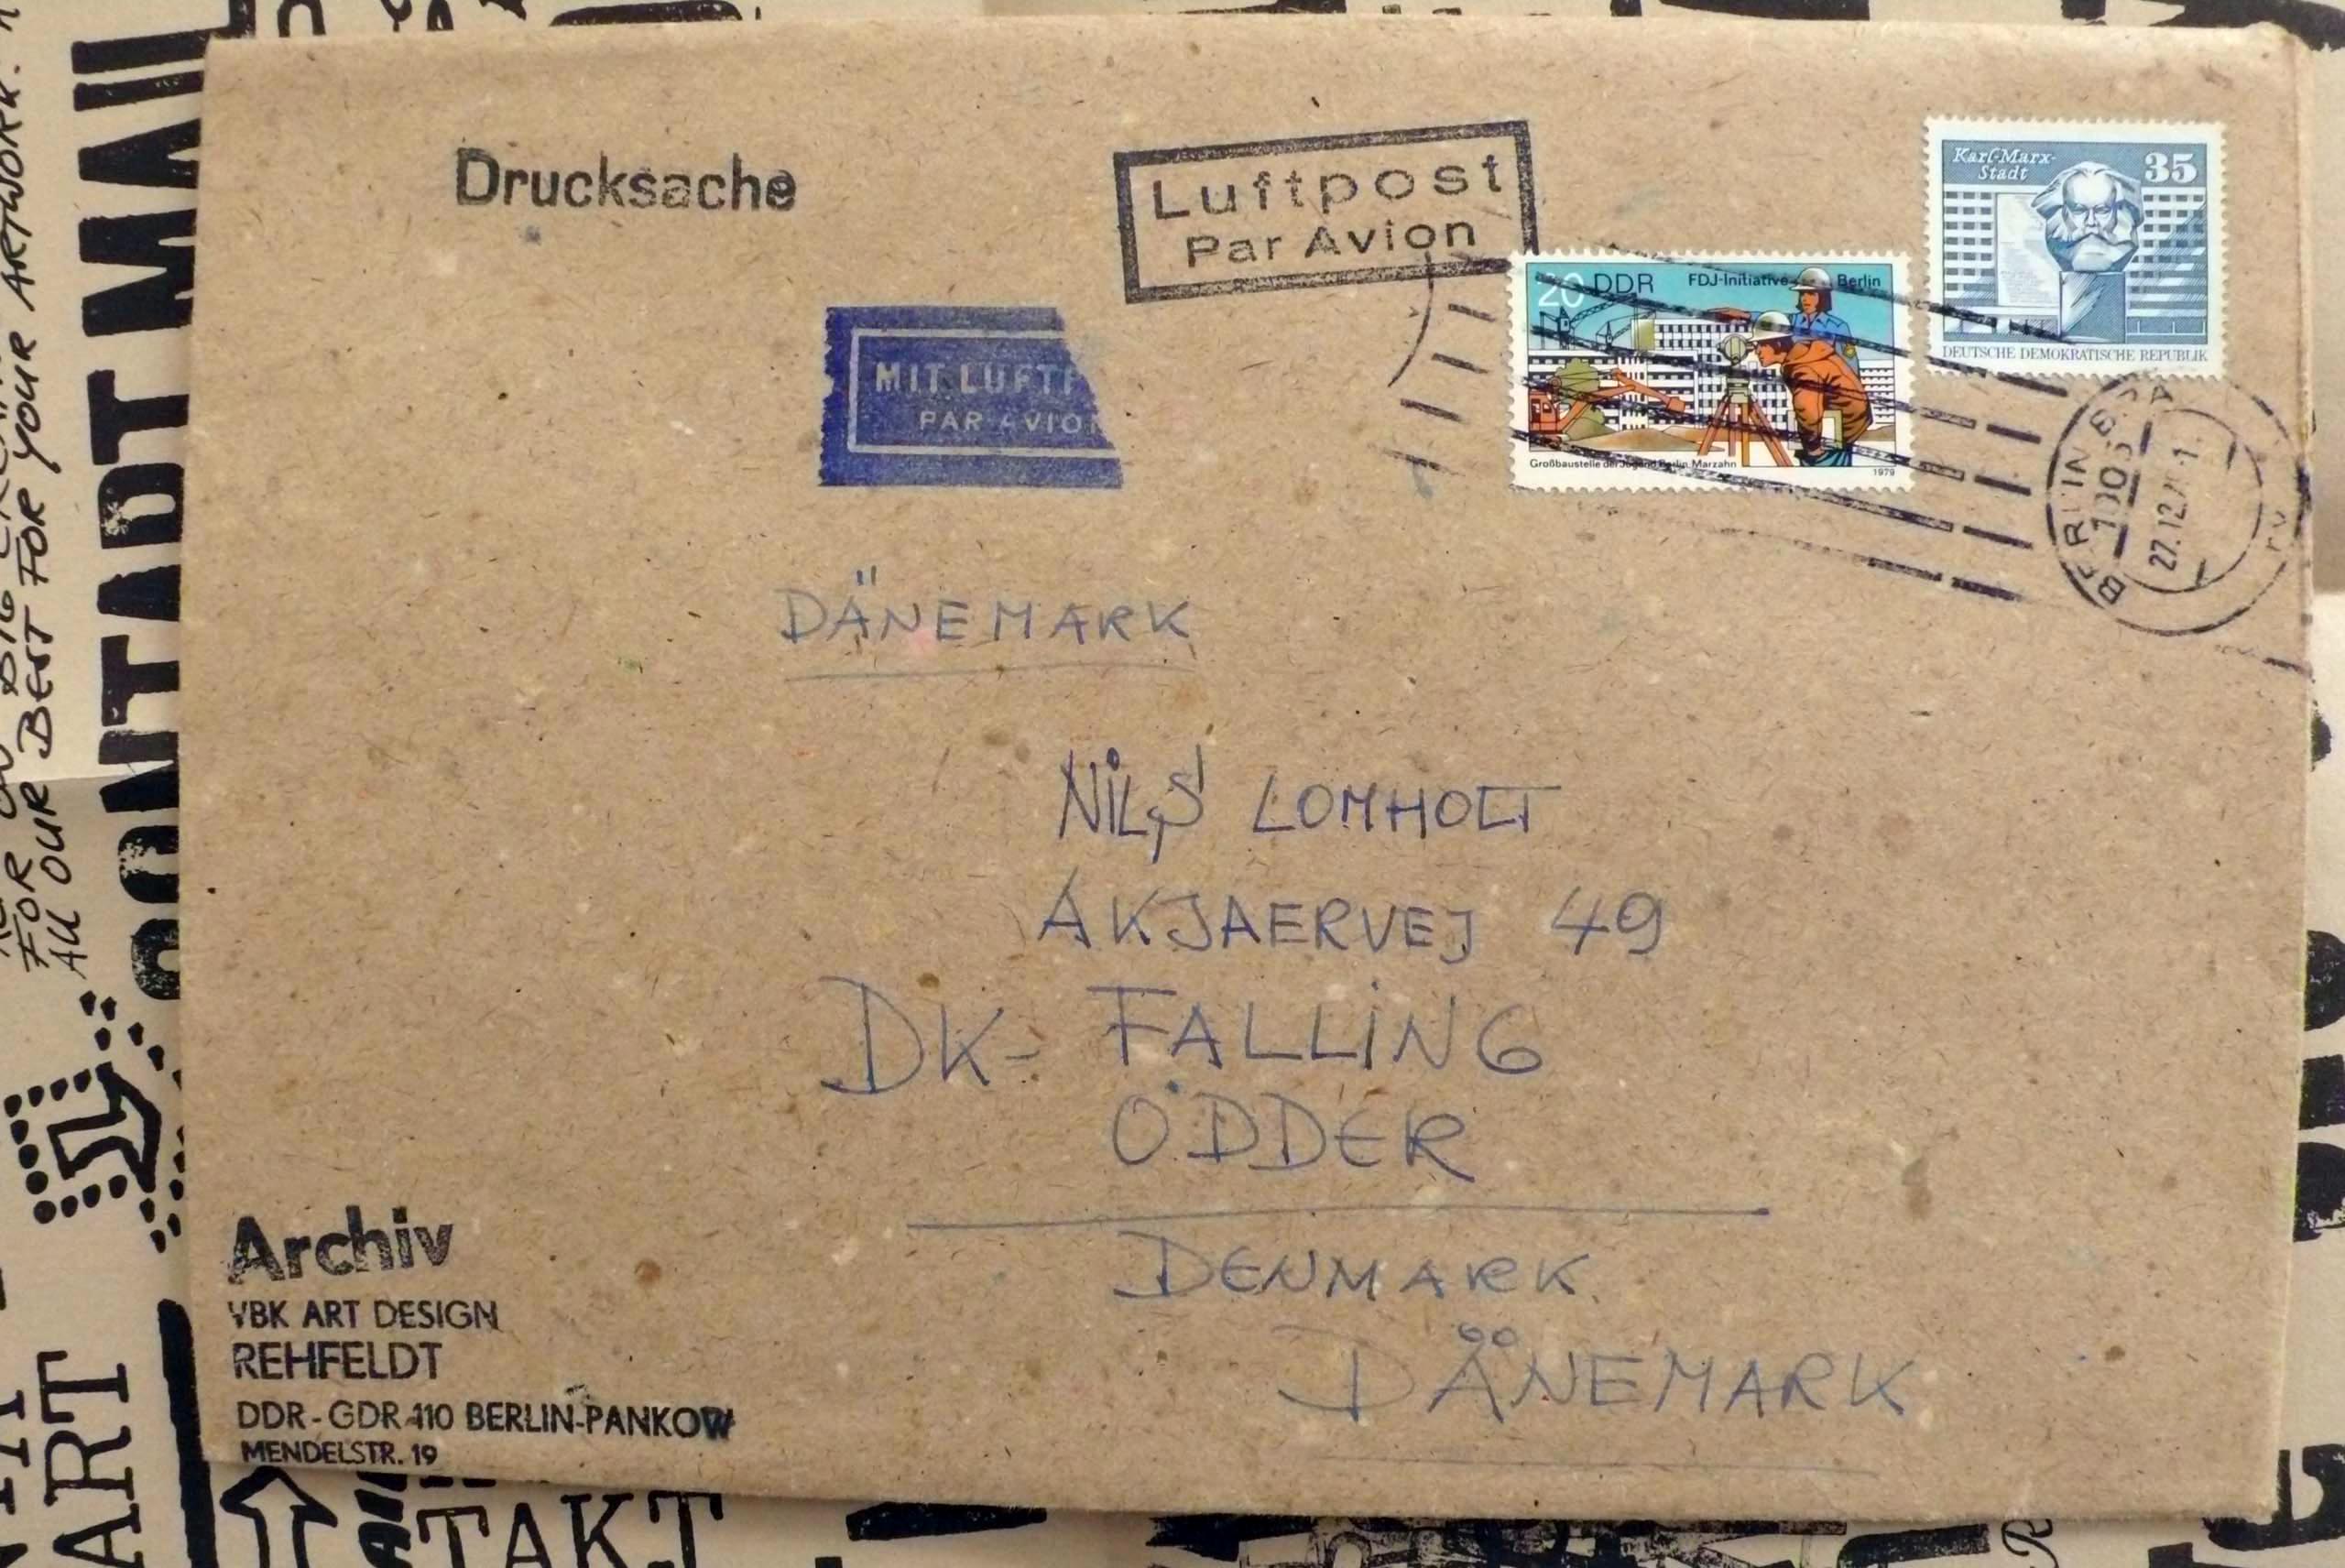 Drucksache
Luftpost
Par Avion
MIT LUFTP
PAR AVION
20 DDR FDJ-Initiative Berlin
Großbaustelle der Jugend Berlin Marzahn
1979
Karl-Marx-
Stadt
35
DEUTSCHE DEMOKRATISCHE REPUBLIK
BERLIN
27.12.
DÄNEMARK
NILS LOMHOLT
AKJAERVEJ 49
DK- FALLING
ODDER
DENMARK.
DÄNEMARK
Archiv
VBK ART DESIGN
REHFELDT
DDR-GDR-110 BERLIN-PANKOW
MENDELSTR. 19
FOR YOUR ARTWORK.
ALL OUR BEST
FOR
CONTADT MAIL
ART
TAKT